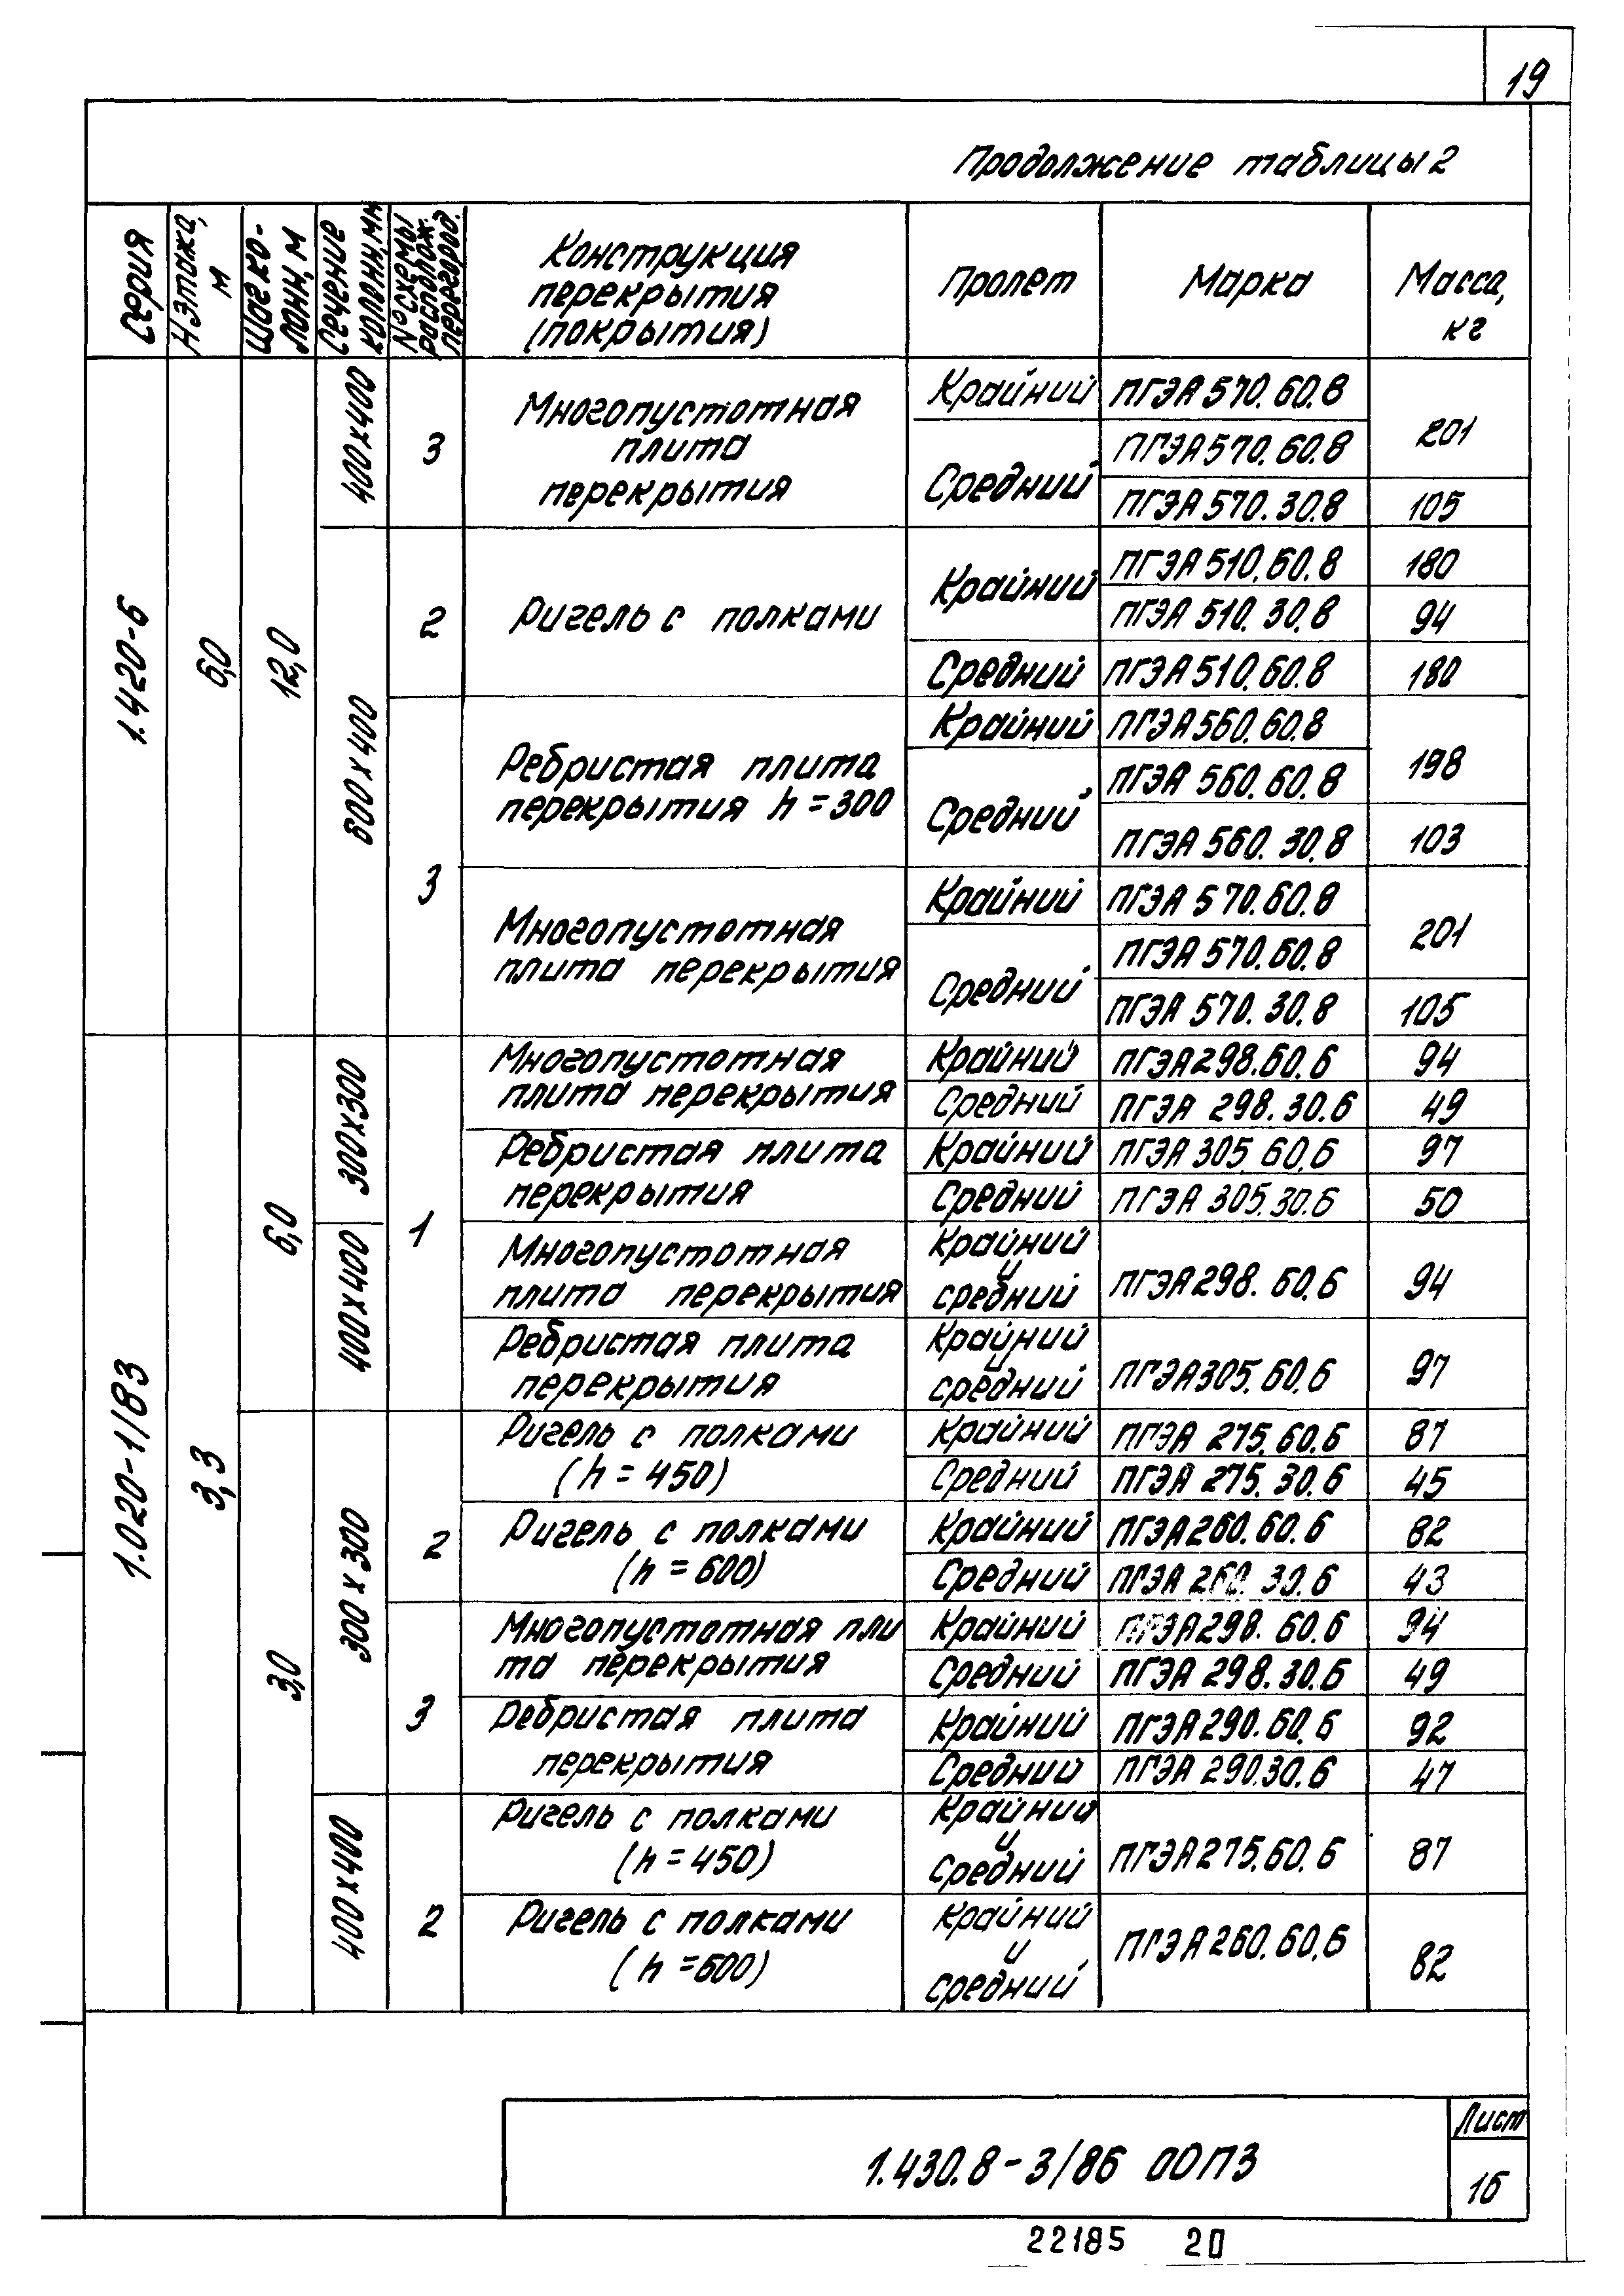 19
Продолжение таблицы 2
Серия
Н этажа, м
Шаг ко-
лонн, м
Сечение
колонн, мм
№ схемы
располож.
перегород.
Конструкция
перекрытия
(покрытия)
Пролет
Марка
Масса,
кг
1.420-6
6,0
12,0
400х400
3
Многопустотная
плита
перекрытия
Крайний ПГЭА 570.60.8
201
Средний
ПГЭА 570.60.8
ПГЭА 570.30.8 105
800х400
2
Ригель с полками
Крайний
ПГЭА 510.60.8 180
ПГЭА 510.30.8 94
Средний ПГЭА 510.60.8 180
3
Ребристая плита
перекрытия h=300
Крайний ПГЭА 560.60.8
198
Средний
ПГЭА 560.60.8
ПГЭА 560.30.8 103
Многопустотная
плита перекрытия
Крайний ПГЭА 570.60.8
201
Средний
ПГЭА 570.60.8
ПГЭА 570.30.8 105
1.020-1/83
3,3
6,0
300х300
1
Многопустотная
плита перекрытия
Крайний ПГЭА 298.60.6 94
Средний ПГЭА 298.30.6 49
Ребристая плита
перекрытия
Крайний ПГЭА 305.60.6 97
Средний ПГЭА 305.30.6 50
400х400
Многопустотная
плита перекрытия
Крайний
и
средний
ПГЭА 298.60.6 94
Ребристая плита
перекрытия
Крайний
и
средний
ПГЭА 305.60.6 97
3,0
300х300
2
Ригель с полками
(h=450)
Крайний ПГЭА 275.60.6 87
Средний ПГЭА 275.30.6 45
Ригель с полками
(h=600)
Крайний ПГЭА 260.60.6 82
Средний ПГЭА 260.30.6 43
3
Многопустотная пли
та перекрытия
Крайний ПГЭА 298.60.6 94
Средний ПГЭА 298.30.6 49
Ребристая плита
перекрытия
Крайний ПГЭА 290.60.6 92
Средний ПГЭА 290.30.6 47
400х400
2
Ригель с полками
(h=450)
Крайний
и
средний
ПГЭА 275.60.6 87
Ригель с полками
(h=600)
Крайний
и
средний
ПГЭА 260.60.6 82
1.430.8-3/86 00ПЗ
Лист
16
22185 20